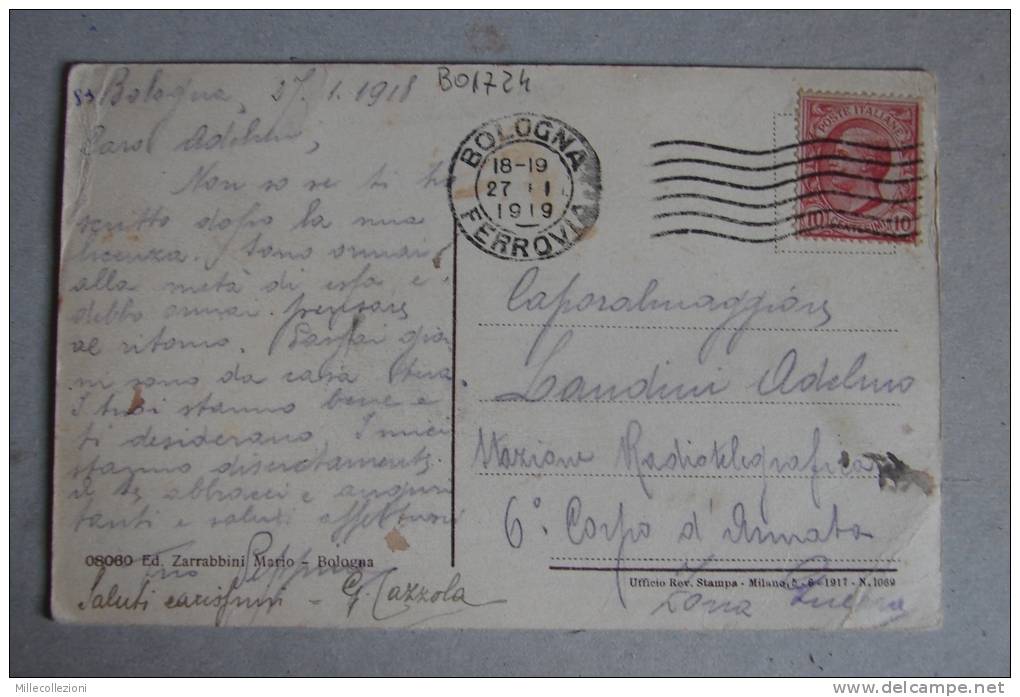 Bologna, 27.1.1918
BO1724
Caro Adelmo,
Non so se ti ho
scritto dopo la mia
licenza. Sono ormai
alla metà di essa e
debbo ormai pensare
al ritorno.
ni sono da casa tua.
I tuoi stanno bene e
ti desiderano, I miei
stanno discretamente.
abbracci e auguri
tanti e saluti affettuosi
tuo Peppino
Saluti carissimi - G. Cazzola
08060 Ed. Zarrabbini Mario - Bologna
BOLOGNA
18-19
27 I
1919
FERROVIA
POSTE ITALIANE
10 CENTESIMI 10
Caporalmaggiore
Landini Adelmo
Stazione Radiotelegrafica
6º. Corpo d'Armata
Zona Guerra
Ufficio Rev. Stampa - Milano, 5-6-1917 - N. 1069
Millecollezioni
www.delcampe.net